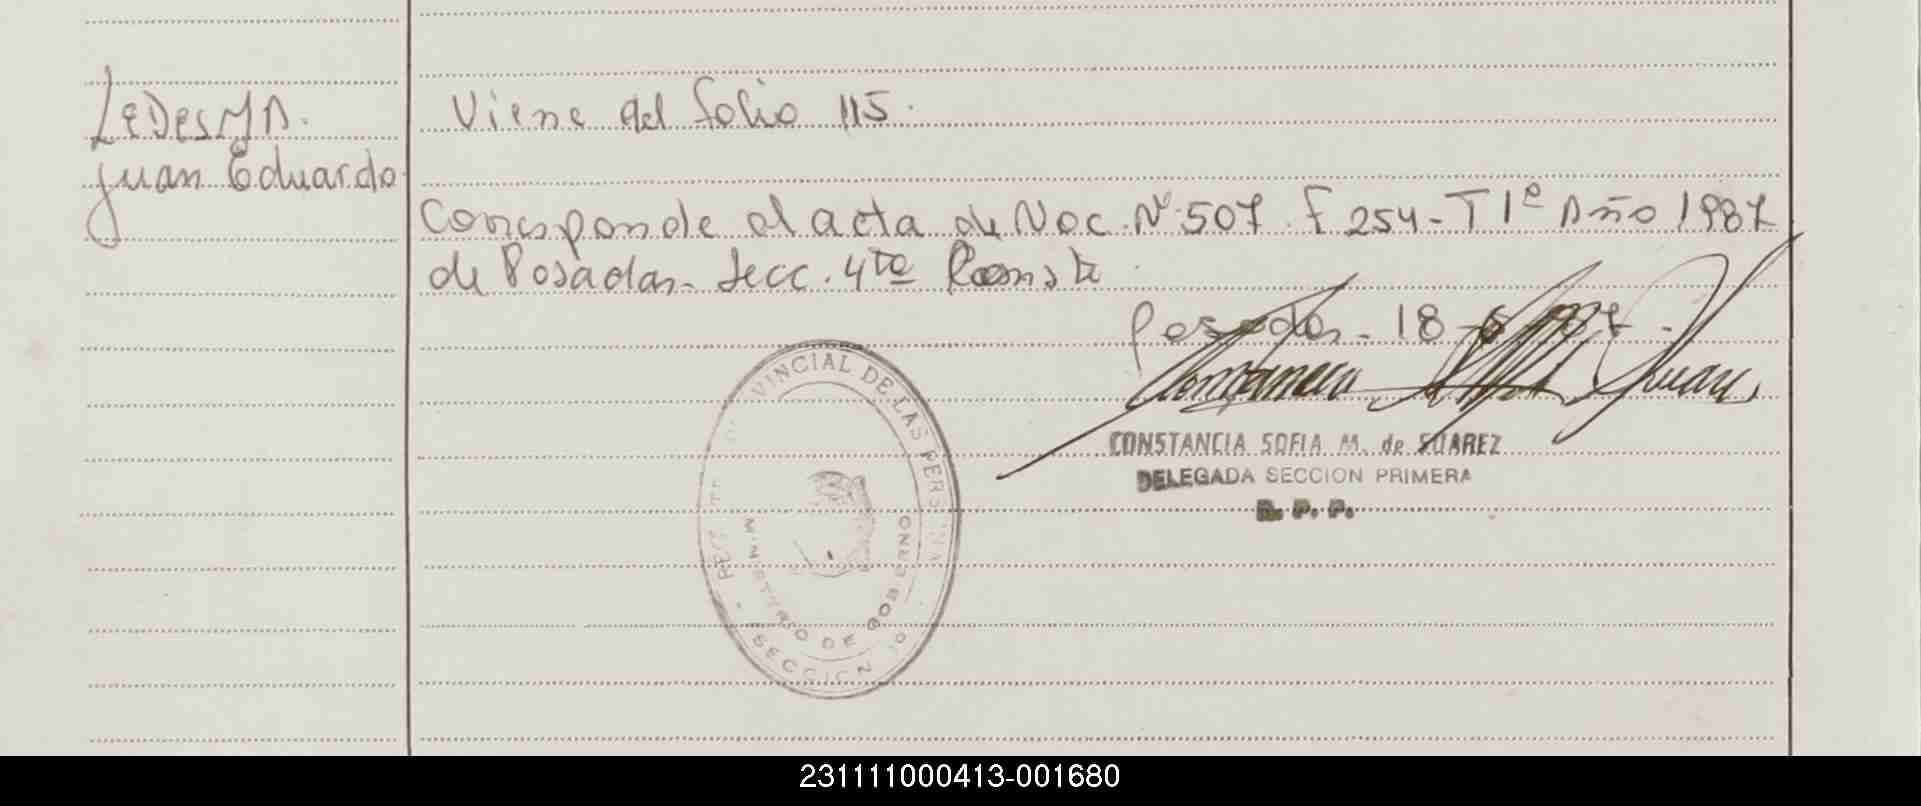 LeDesMA.
Juan Eduardo
Viene del folio 115.
Corresponde al acta de Nac. Nº 507. F 254 - T 1º Año 1987
de Posadas. Secc. 4ta
Posadas - 18 - 5 - 987 -
CONSTANCIA SOFIA M. de SUAREZ
DELEGADA SECCION PRIMERA
R. P. P.
VINCIAL DE LAS PERSONAS
MINISTERIO DE GOBIERNO
SECCION 1º
231111000413-001680